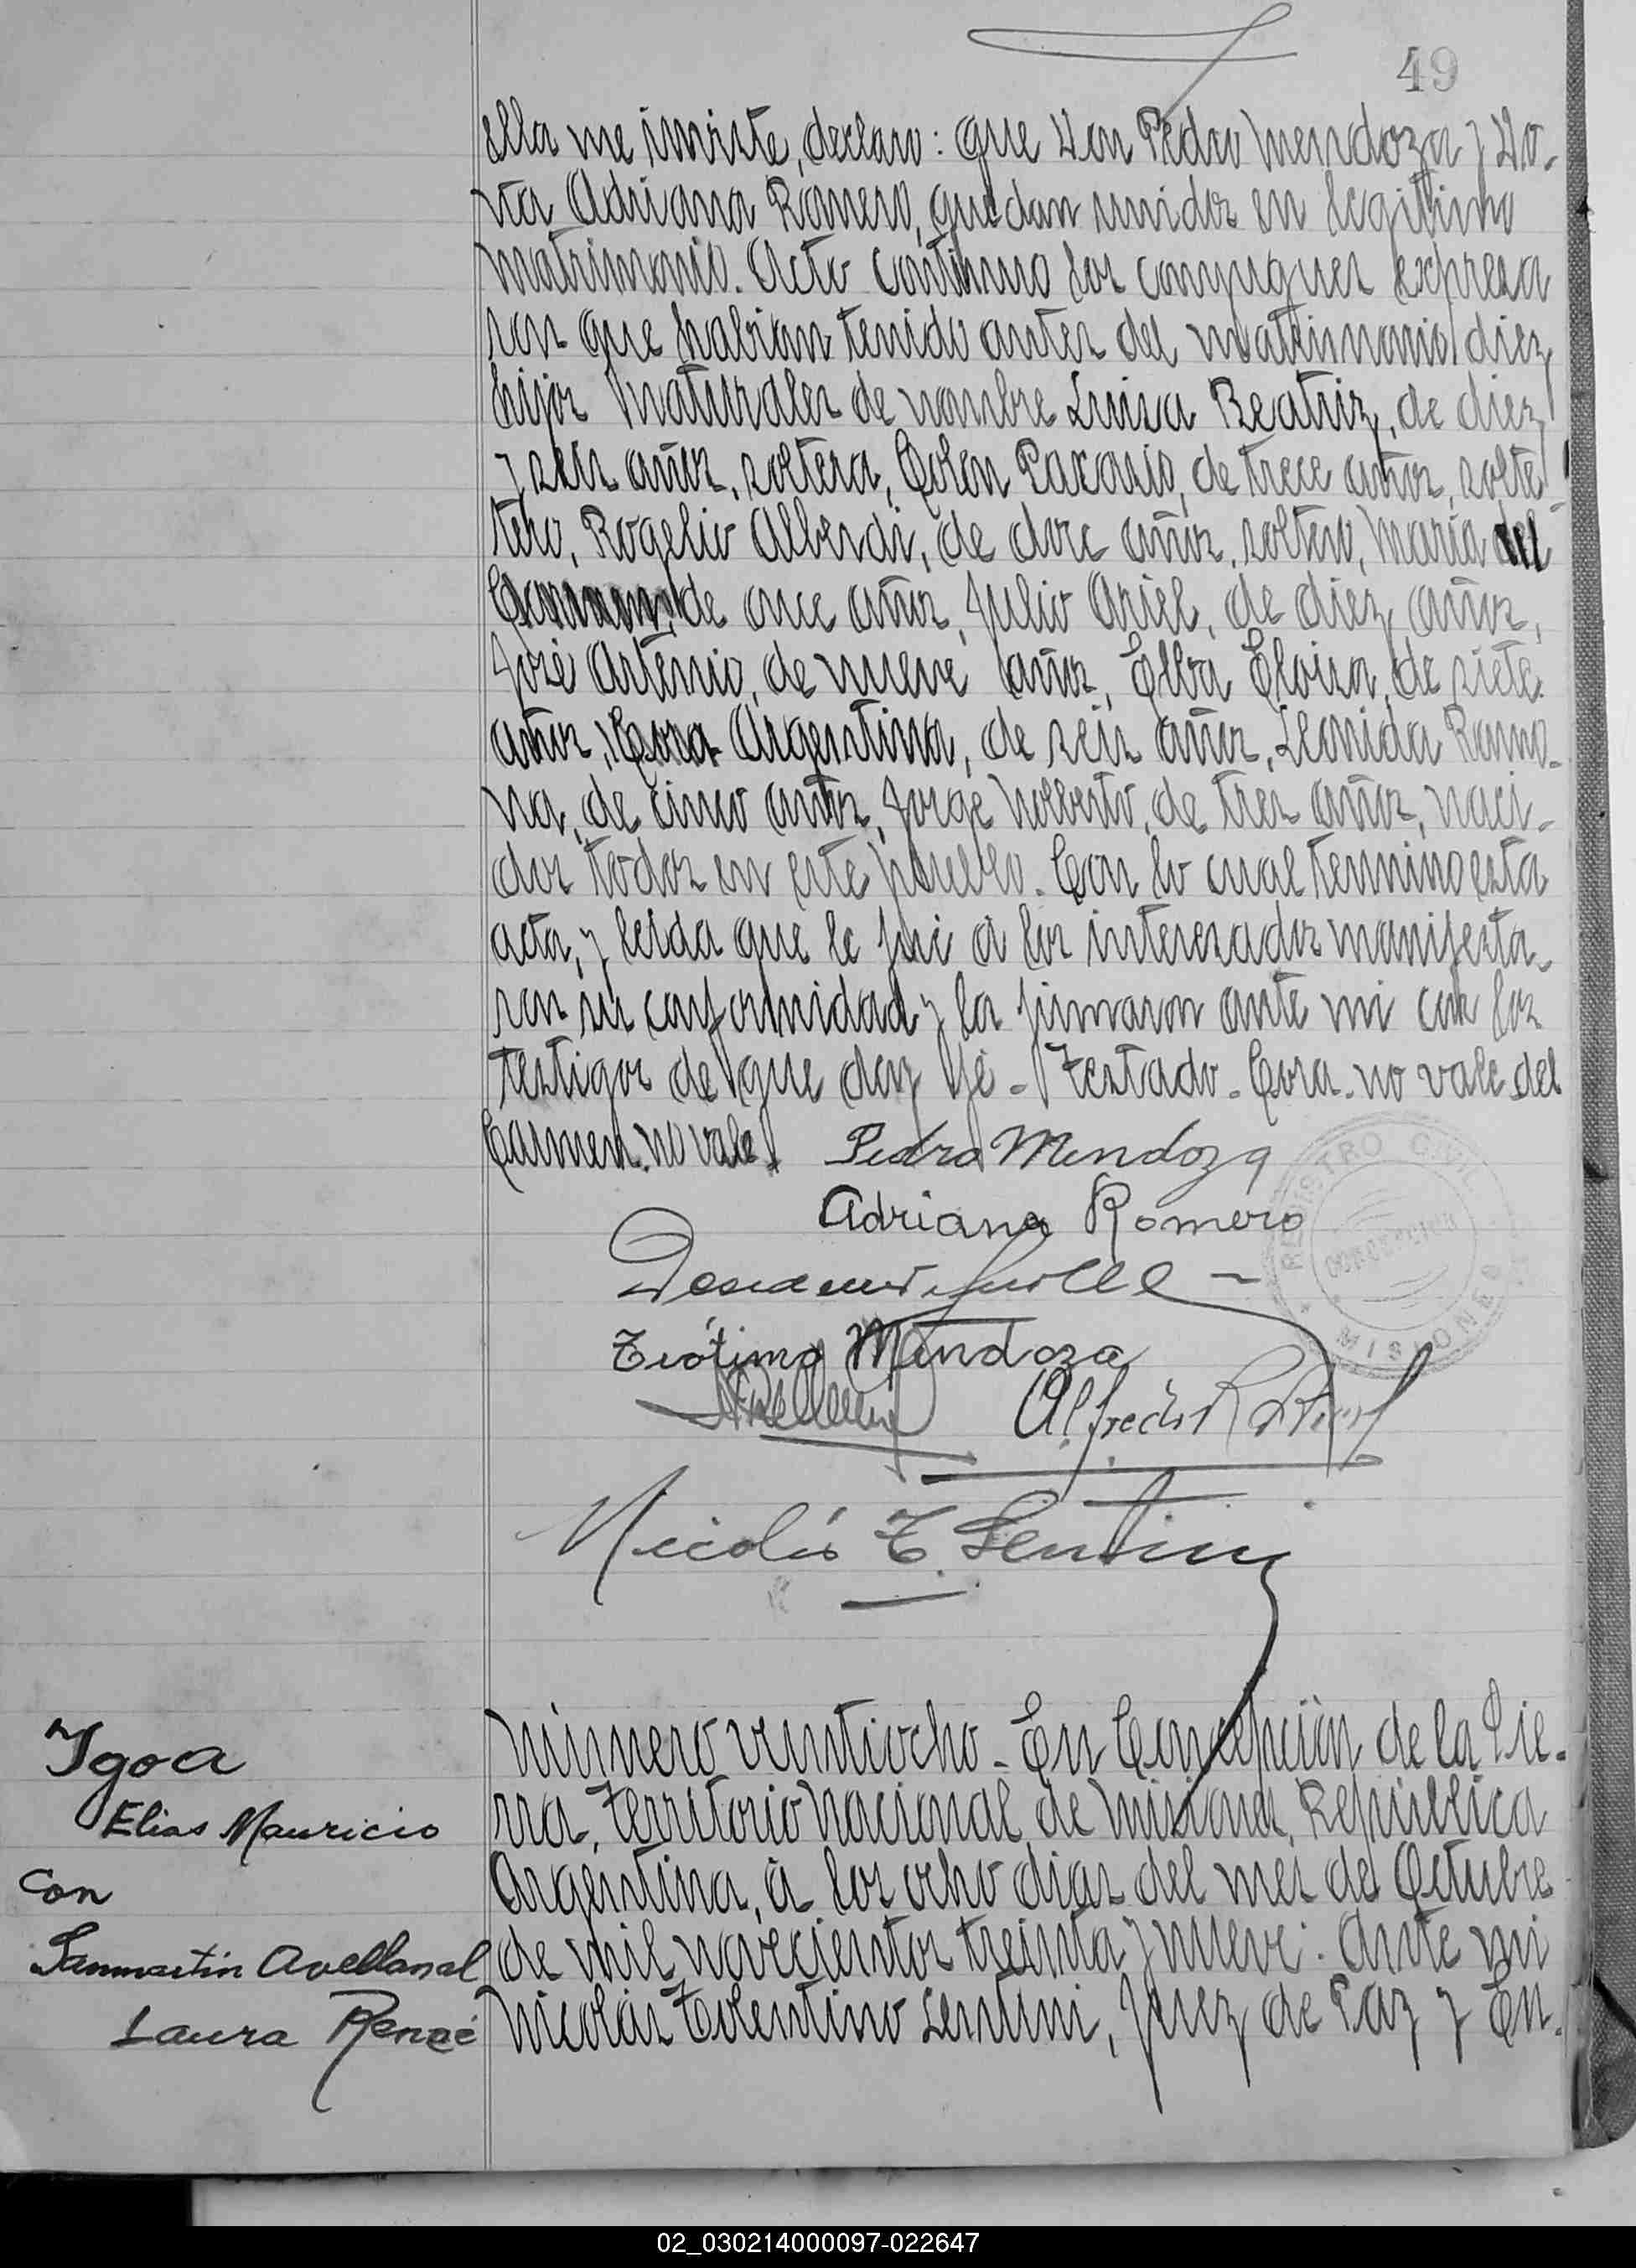 49
ella me inviste, declaro: que Don Pedro Mendoza y Do-
ña Adriana Romero, quedan unidos en legitimo
matrimonio. Acto continuo los conyugues expresa
ron que habian tenido antes del matrimonio diez
hijos naturales de nombre Luisa Beatriz, de diez
y seis años, soltera, de trece años, solte
tero, Rogelio Alberdi, de doce años, soltero, Maria del
Carmen, de once años, Julio Ariel, de diez años,
José Artemio, de nueve años, Elba Eloisa, de siete
años, Cora Argentina, de seis años, Leonida Ramo-
na, de cinco años, Jorge Nolberto, de tres años, naci-
dos todos en este pueblo. Con lo cual termino esta
acta, y leida que le fué a los interesados manifesta-
ron su conformidad y la firmaron ante mi con los
testigos de que doy fé - Testado - Cora - no vale del
Carmen. no vale.
Pedro Mendoza
Adriana Romero
REGISTRO CIVIL
MISIONES
Teótimo Mendoza
Alfredo R
Nicolás T. Sentini
Número veintiocho - En Concepción de la Sie-
rra, Territorio Nacional de Misiones, República
Argentina, á los ocho dias del mes de Octubre
de mil novecientos treinta y nueve: Ante mi
Nicolás Tolentino Sentini, Juez de Paz y En-
Ygoa
Elias Mauricio
Con
Sanmartin Avellanal
Laura Reneé
02_030214000097-022647